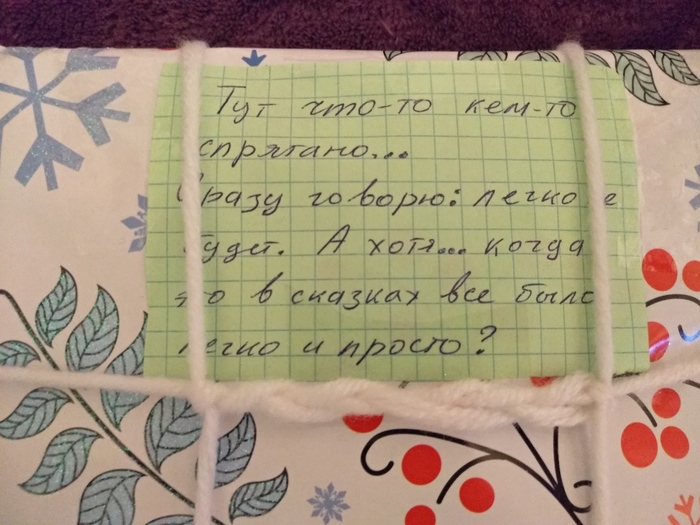 Тут что-то кем-то
спрятано...
Сразу говорю: легко не
будет. А хотя... когда
это в сказках все было
легко и просто?